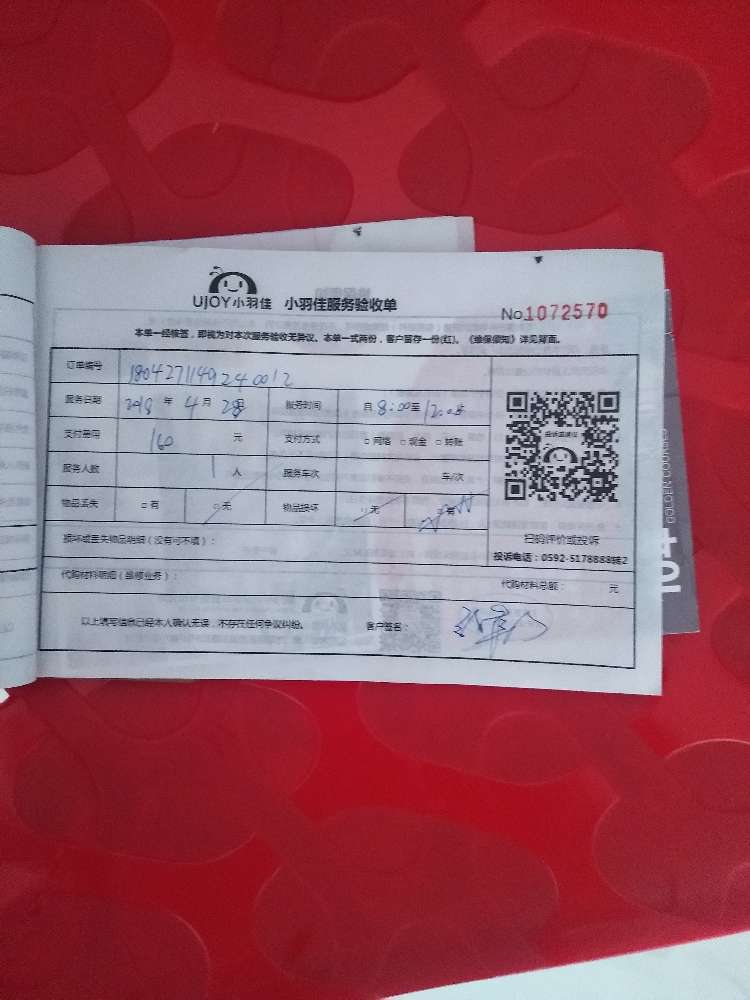 UJOY小羽佳 小羽佳服务验收单
No.1072570
本单一经核签，即视为对本次服务验收无异议。本单一式两份，客户留存一份(红)。《维保须知》详见背面。
订单编号 1804271149240012
服务日期 2018 年 4 月 28 服务时间 自 8:00至12:00
支付费用 160 元 支付方式 □网络 □现金 □转账
服务人数 1 人 服务车次 车/次
物品丢失 □有 □无 物品损坏 □无 □有
损坏或丢失物品明细（没有可不填）：
扫码评价或投诉
投诉电话：0592-5178888转2
代购材料明细（维修业务）： 代购材料总额： 元
以上填写信息已经本人确认无误，不存在任何争议纠纷。 客户签名：
104
GOLDEN COURSES